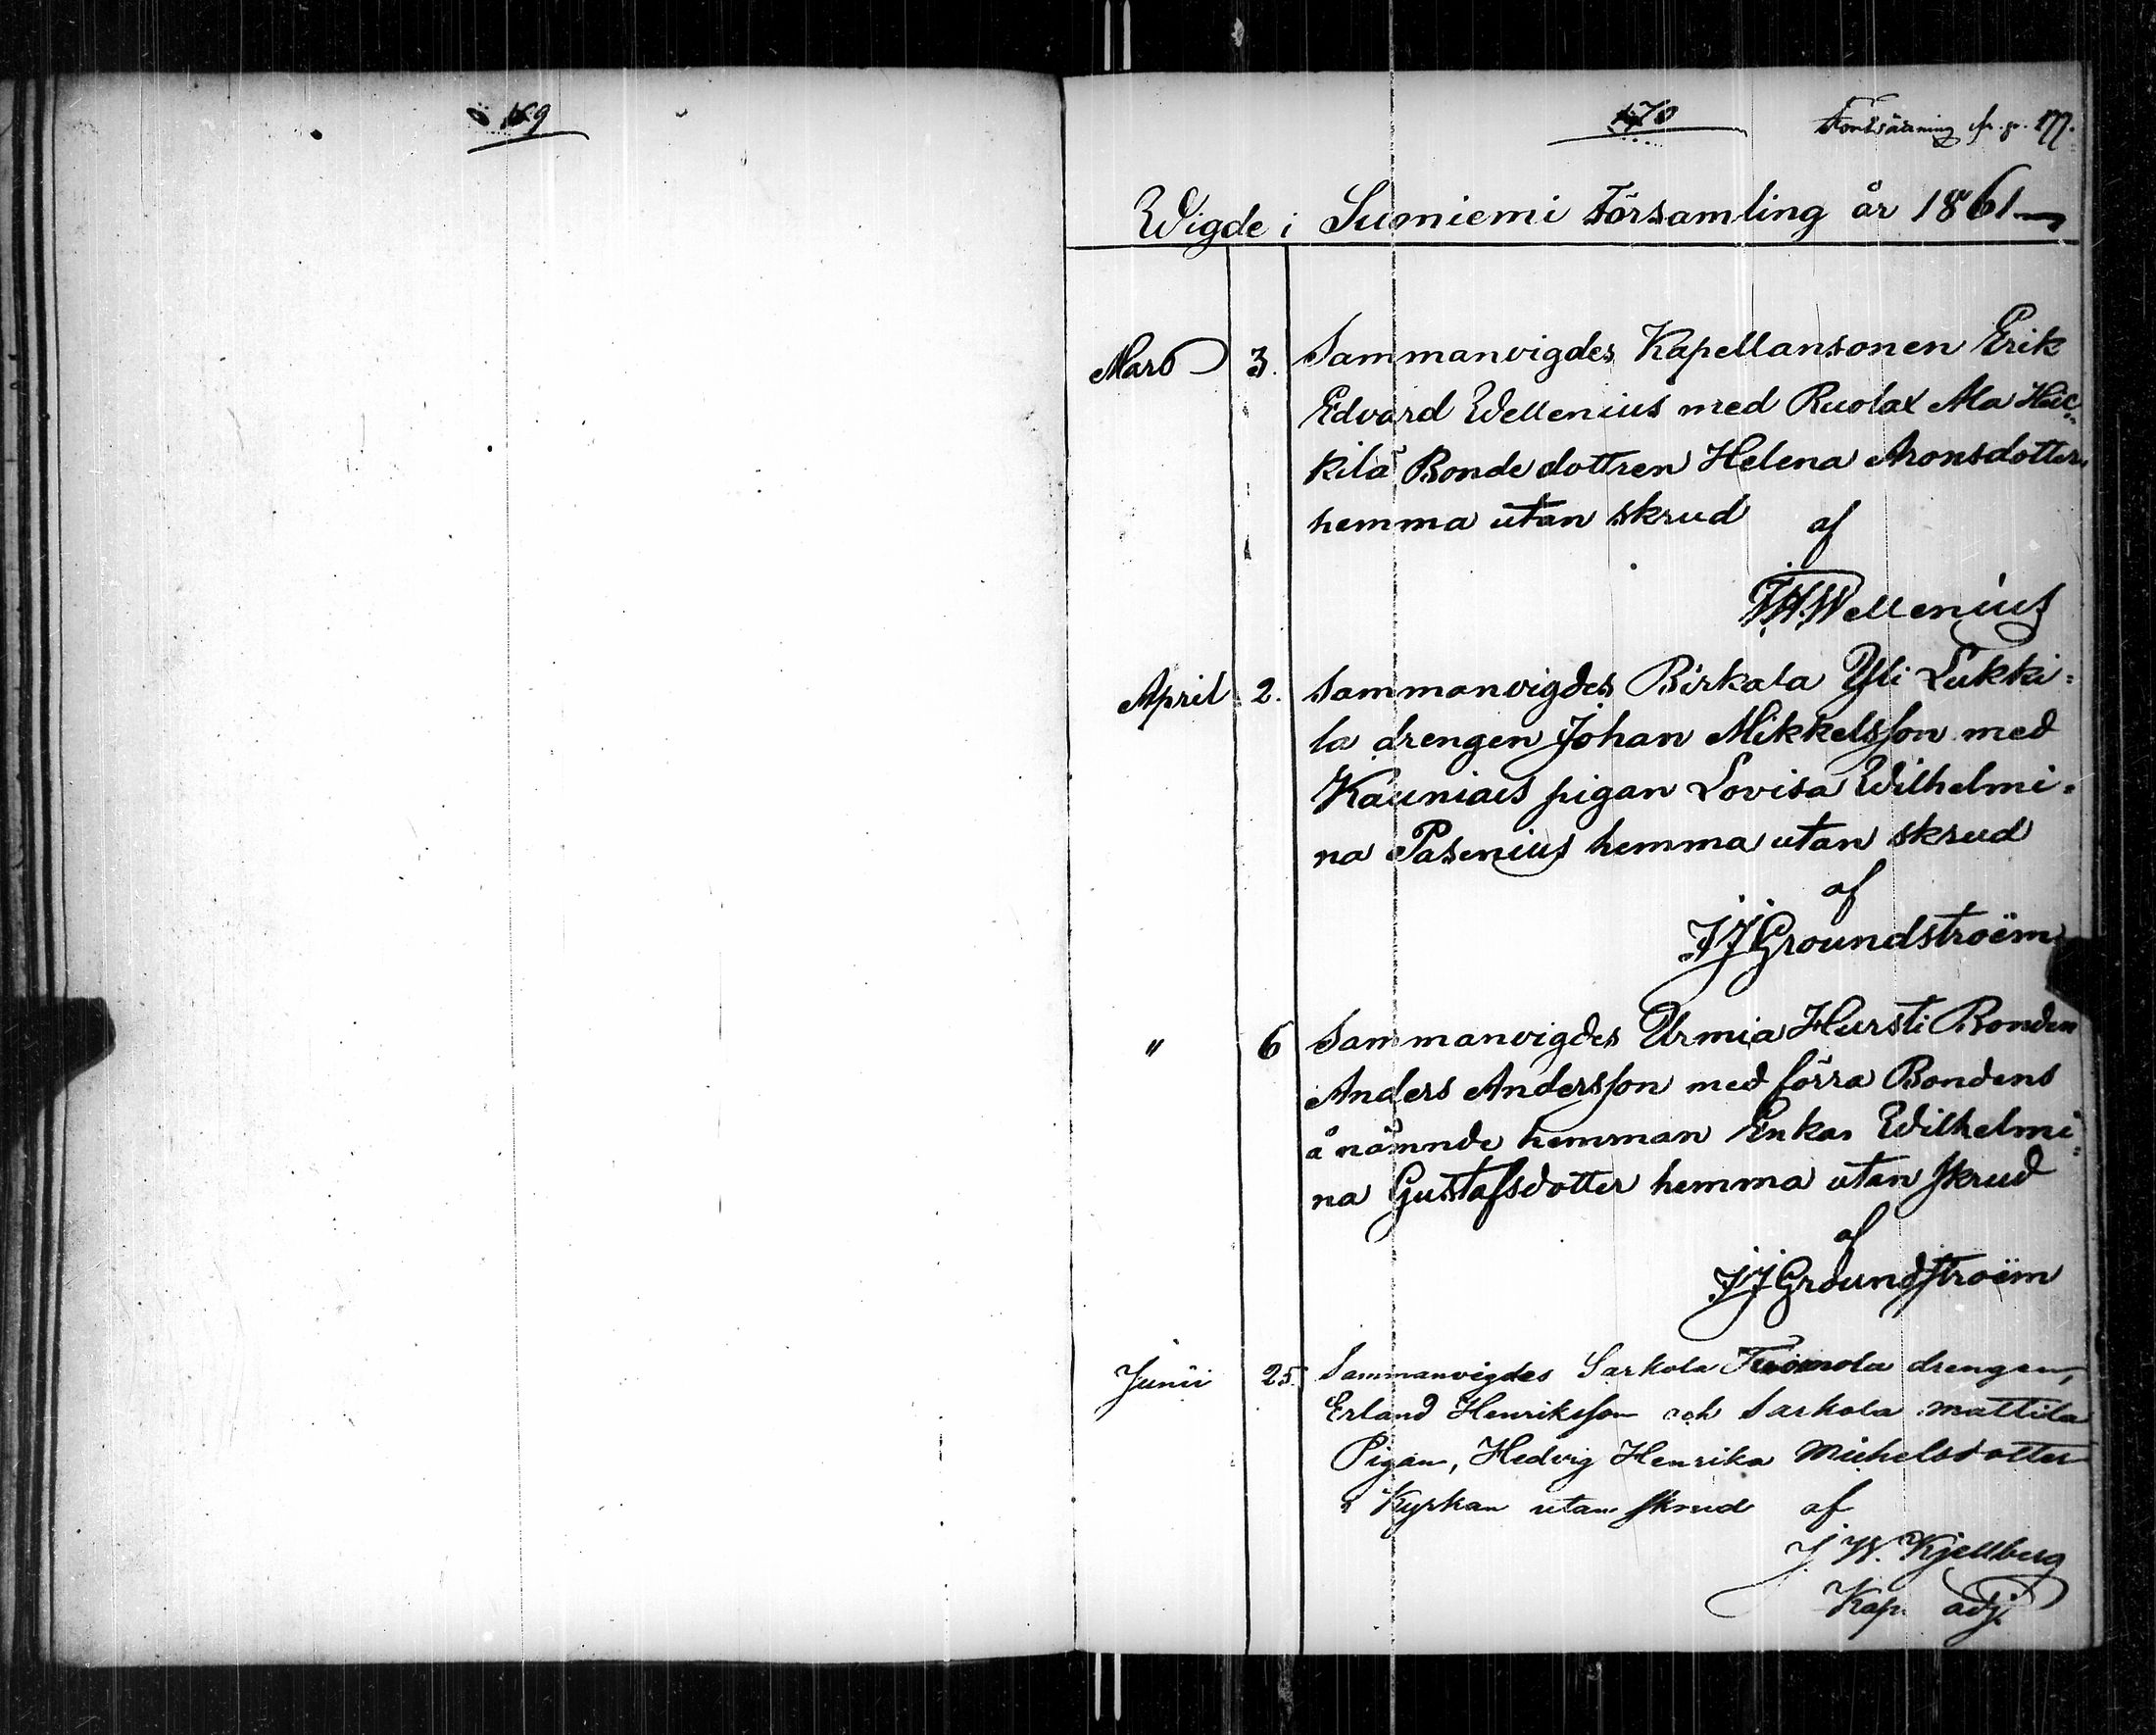 169
170
Fortsättning fr. p. 177.
Wigde i Suoniemi Församling år 1861
Mars 3. Sammanvigdes Kapellansonen Erik
Edvard Wellenius med Ruolax Ala Heic-
kilä Bonde dottren Helena Aronsdotter
hemma utan skrud af
Wellenius
April 2. Sammanvigdes Birkala Yli Lukki=
la drengen Johan Mikkelsson med
Kauniais pigan Lovisa Wilhelmi=
na Pasenius hemma utan skrud
af
JJGroundstroëm
" 6 Sammanvigdes Urmia Hursti Bonden
Anders Andersson med förra Bondens
å nämnde hemman Enka Wilhelmi=
na Gustafsdotter hemma utan skrud
af
JJGroundstroëm
Junii 25. Sammanvigdes Sarkola Tuomola drengen,
Erland Henriksson och Sarkola Mattila
Pigan, Hedvig Henrika Michelsdotter
i Kyrkan utan skrud af
J W. Kjellberg
Kap. adj.